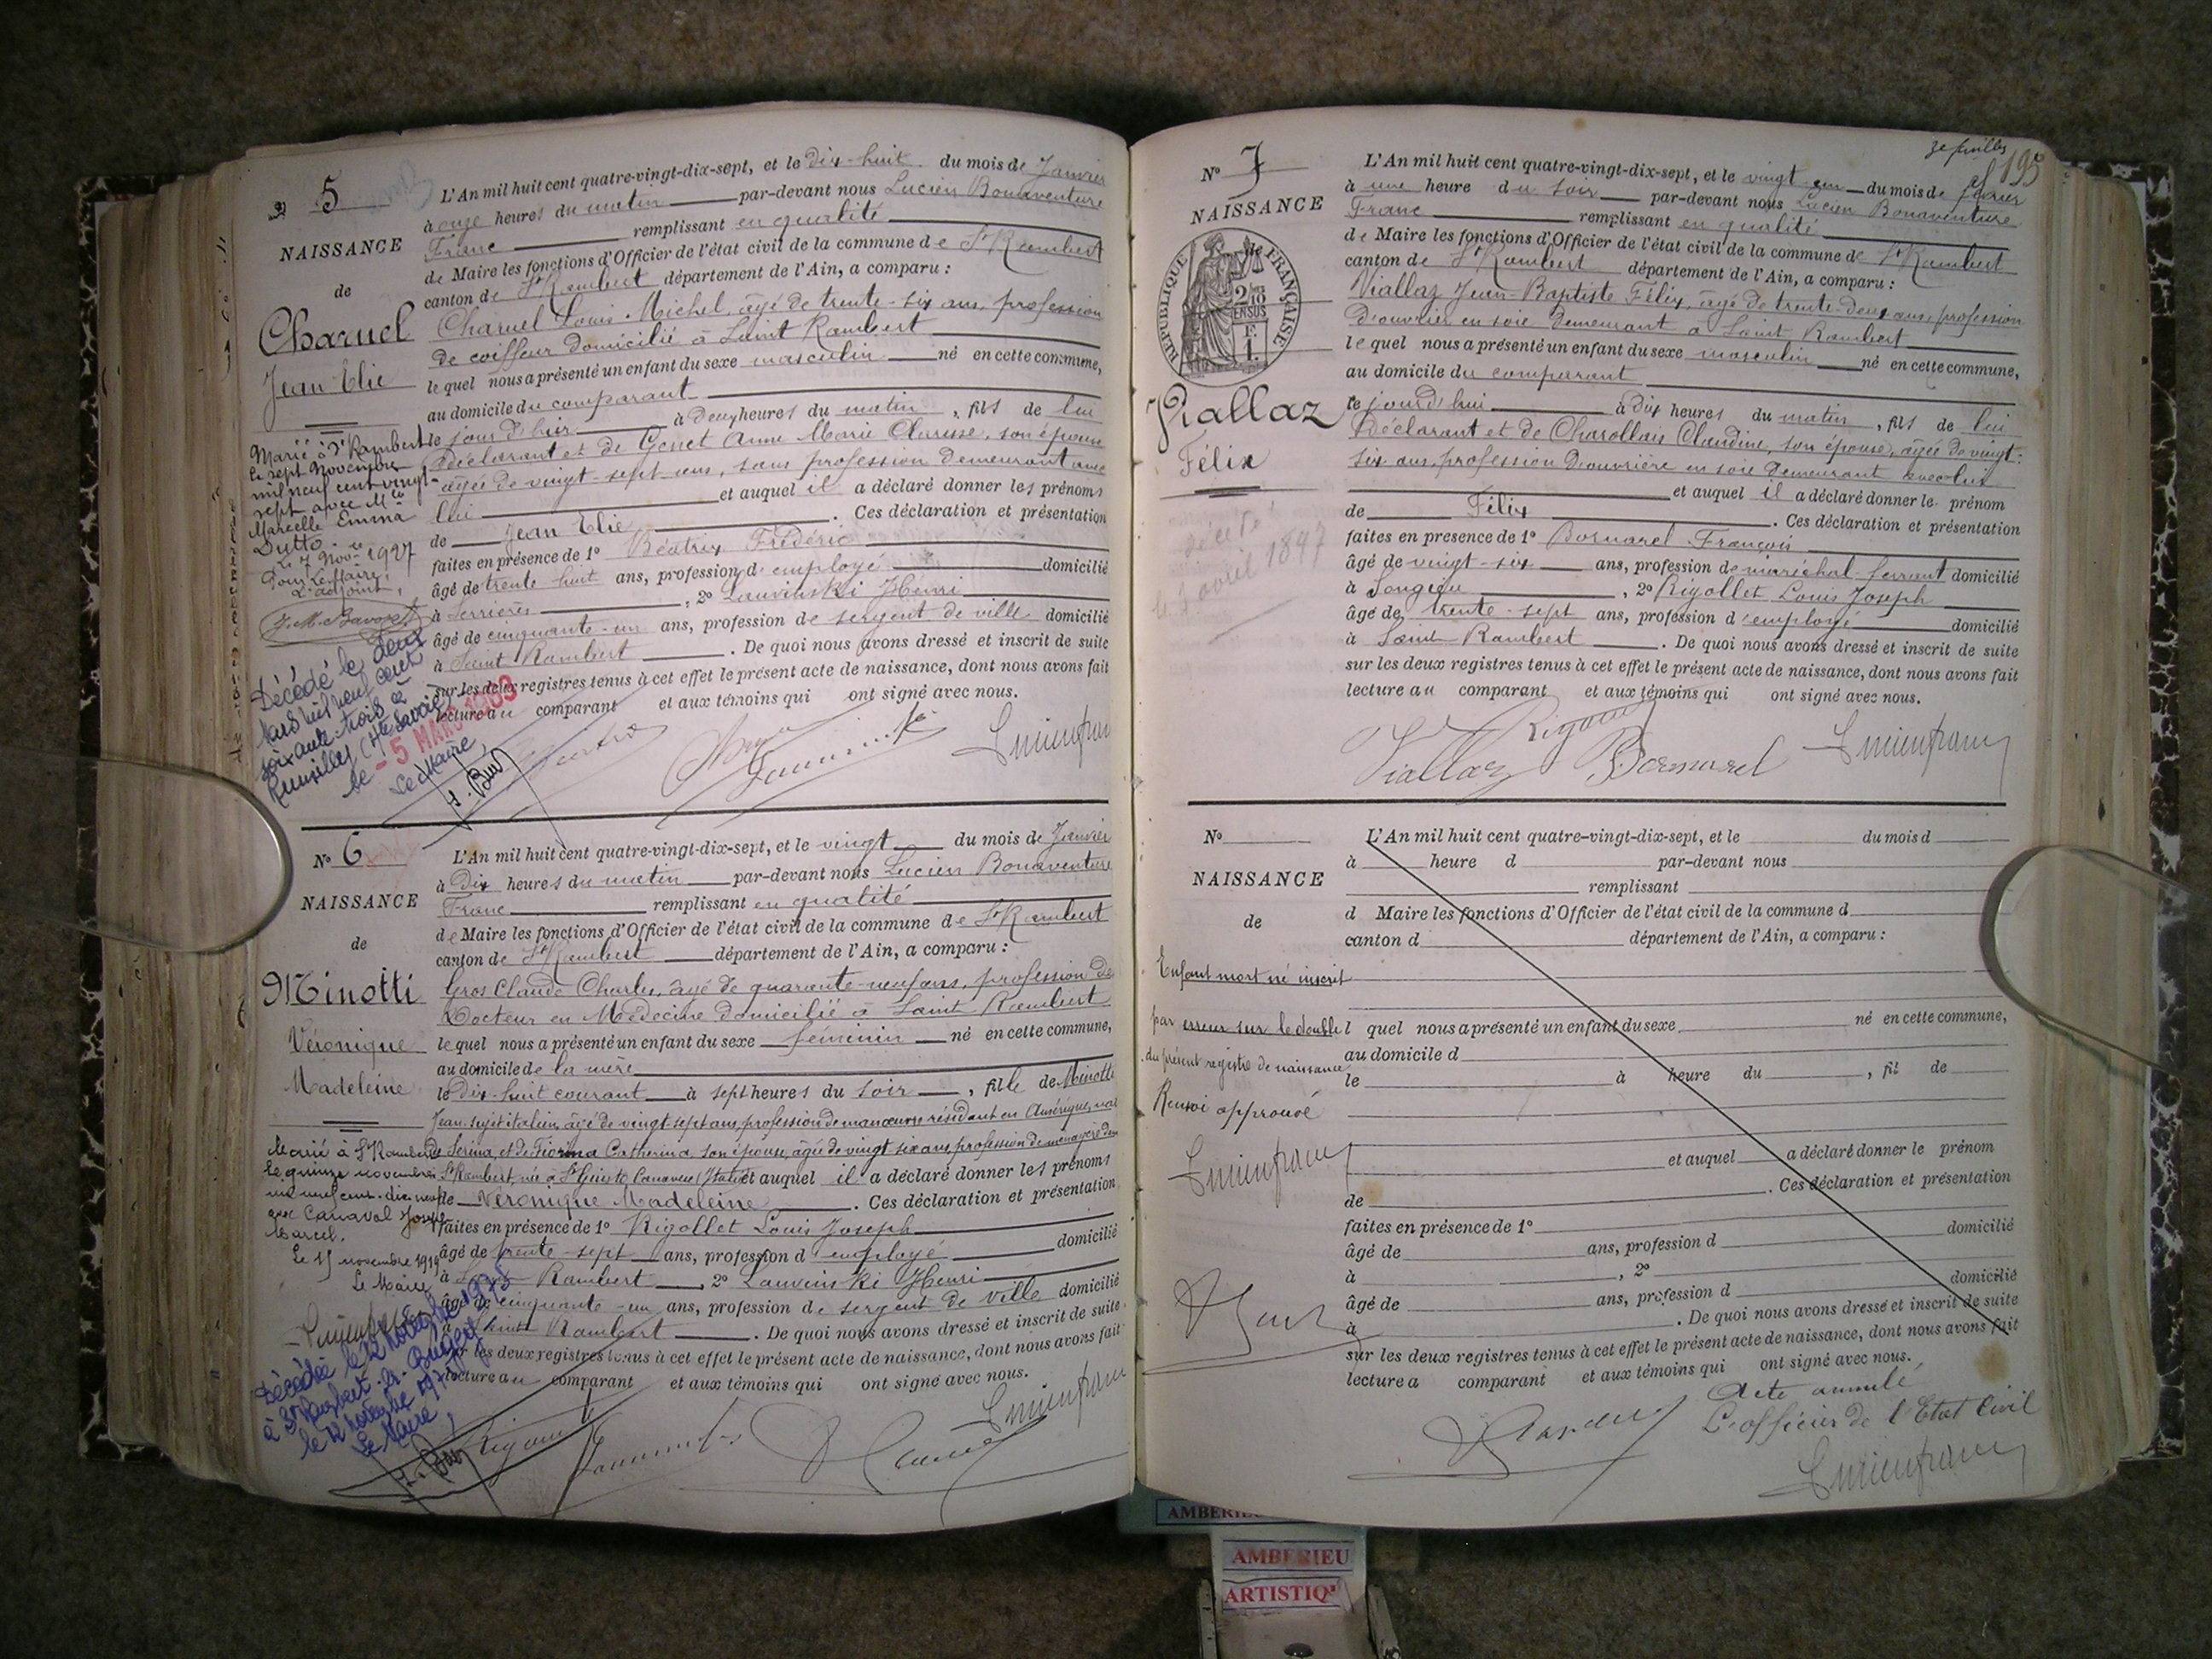 5
NAISSANCE
de
Charuel
Jean Elie
L'An mil huit cent quatre-vingt-dix-sept, et le dix-huit du mois de Janvier
à onze heures du matin par-devant nous Lucien Bonaventure
Franc remplissant en qualité
de Maire les fonctions d'Officier de l'état civil de la commune de St Rambert
canton de St Rambert département de l'Ain, a comparu :
Charuel Louis Michel, âgé de trente-six ans, profession
de coiffeur domicilié à Saint Rambert
lequel nous a présenté un enfant du sexe masculin né en cette commune,
au domicile du comparant
le jour d'hier à deux heures du matin, fils de lui
déclarant et de Genet Anne Marie Clarisse, son épouse
âgée de vingt-sept ans, sans profession demeurant avec
lui et auquel il a déclaré donner les prénoms
de Jean Elie. Ces déclaration et présentation
faites en présence de 1° Béatrix Frédéric
âgé de trente huit ans, profession d'employé domicilié
à Serrières, 2° Lauvinski Henri
âgé de cinquante-un ans, profession de sergent de ville domicilié
à Saint Rambert. De quoi nous avons dressé et inscrit de suite
sur les deux registres tenus à cet effet le présent acte de naissance, dont nous avons fait
lecture au comparant et aux témoins qui ont signé avec nous.
Marié à St Rambert
le sept Novembre
mil neuf cent vingt-
sept avec Mlle
Marcelle Emma
Dutto
Le 7 Novre 1927
Pour Le Maire,
L'adjoint,
Décédé le deux
Mars mil neuf cent
soixante trois à
Rumilly (Hte Savoie)
le - 5 MARS 1963
Le Maire,
N° 6
NAISSANCE
de
Minotti
Véronique
Madeleine
L'An mil huit cent quatre-vingt-dix-sept, et le vingt du mois de Janvier
à dix heures du matin par-devant nous Lucien Bonaventure
Franc remplissant en qualité
de Maire les fonctions d'Officier de l'état civil de la commune de St Rambert
canton de St Rambert département de l'Ain, a comparu :
Gros Claude Charles, âgé de quarante-neuf ans, profession de
Docteur en Médecine domicilié à Saint Rambert
lequel nous a présenté un enfant du sexe féminin né en cette commune,
au domicile de la mère
le dix-huit courant à sept heures du soir, fille de Minotti
Jean sujet italien, âgé de vingt sept ans, profession de manœuvre résidant en Amérique,
et de Fiorina Catherina son épouse, âgée de vingt six ans, profession de ménagère
St Rambert, née à (Italie) et auquel il a déclaré donner les prénoms
de Véronique Madeleine. Ces déclaration et présentation
faites en présence de 1° Rigollet Louis Joseph
âgé de trente-sept ans, profession d'employé domicilié
à Saint Rambert, 2° Lauvinski Henri
âgé de cinquante-un ans, profession de sergent de ville domicilié
à Saint Rambert. De quoi nous avons dressé et inscrit de suite
sur les deux registres tenus à cet effet le présent acte de naissance, dont nous avons fait
lecture au comparant et aux témoins qui ont signé avec nous.
Marié à St Rambert
le quinze novembre
mil neuf cent dix neuf
avec Canaval Joseph
Marcel.
Le 15 novembre 1919
Le Maire
Décédée le 12 Novembre 1975
à St Rambert en Bugey
le 12 Novembre 1975
Le Maire,
3e feuillet
195
N° 7
NAISSANCE
de
RÉPUBLIQUE FRANÇAISE
2/10 EN SUS
Viallaz
Félix
L'An mil huit cent quatre-vingt-dix-sept, et le vingt-un du mois de février
à une heure du soir par-devant nous Lucien Bonaventure
Franc remplissant en qualité
de Maire les fonctions d'Officier de l'état civil de la commune de St Rambert
canton de St Rambert département de l'Ain, a comparu :
Viallaz Jean-Baptiste Félix, âgé de trente-deux ans, profession
d'ouvrier en soie demeurant à Saint Rambert
lequel nous a présenté un enfant du sexe masculin né en cette commune,
au domicile du comparant
le jourd'hui à dix heures du matin, fils de lui
déclarant et de Charollais Claudine, son épouse, âgée de vingt-
six ans, profession d'ouvrière en soie demeurant avec lui
et auquel il a déclaré donner le prénom
de Félix. Ces déclaration et présentation
faites en présence de 1° Bornarel François
âgé de vingt-six ans, profession de maréchal ferrant domicilié
à Songieu, 2° Rigollet Louis Joseph
âgé de trente-sept ans, profession d'employé domicilié
à Saint Rambert. De quoi nous avons dressé et inscrit de suite
sur les deux registres tenus à cet effet le présent acte de naissance, dont nous avons fait
lecture au comparant et aux témoins qui ont signé avec nous.
avril 1897
Viallaz Bornarel
N°
NAISSANCE
de
L'An mil huit cent quatre-vingt-dix-sept, et le du mois d
à heure d par-devant nous
remplissant
d Maire les fonctions d'Officier de l'état civil de la commune d
canton d département de l'Ain, a comparu :
l quel nous a présenté un enfant du sexe né en cette commune,
au domicile d
le à heure du , fil de
et auquel a déclaré donner le prénom
de . Ces déclaration et présentation
faites en présence de 1° domicilié
âgé de ans, profession d
à , 2°
âgé de ans, profession d domicilié
à . De quoi nous avons dressé et inscrit de suite
sur les deux registres tenus à cet effet le présent acte de naissance, dont nous avons fait
lecture a comparant et aux témoins qui ont signé avec nous.
Enfant mort né inscrit
par erreur sur le double
du présent registre de naissance
Renvoi approuvé
Acte annulé
L'officier de l'Etat Civil
AMBERIEU
AMBERIEU
ARTISTIQ